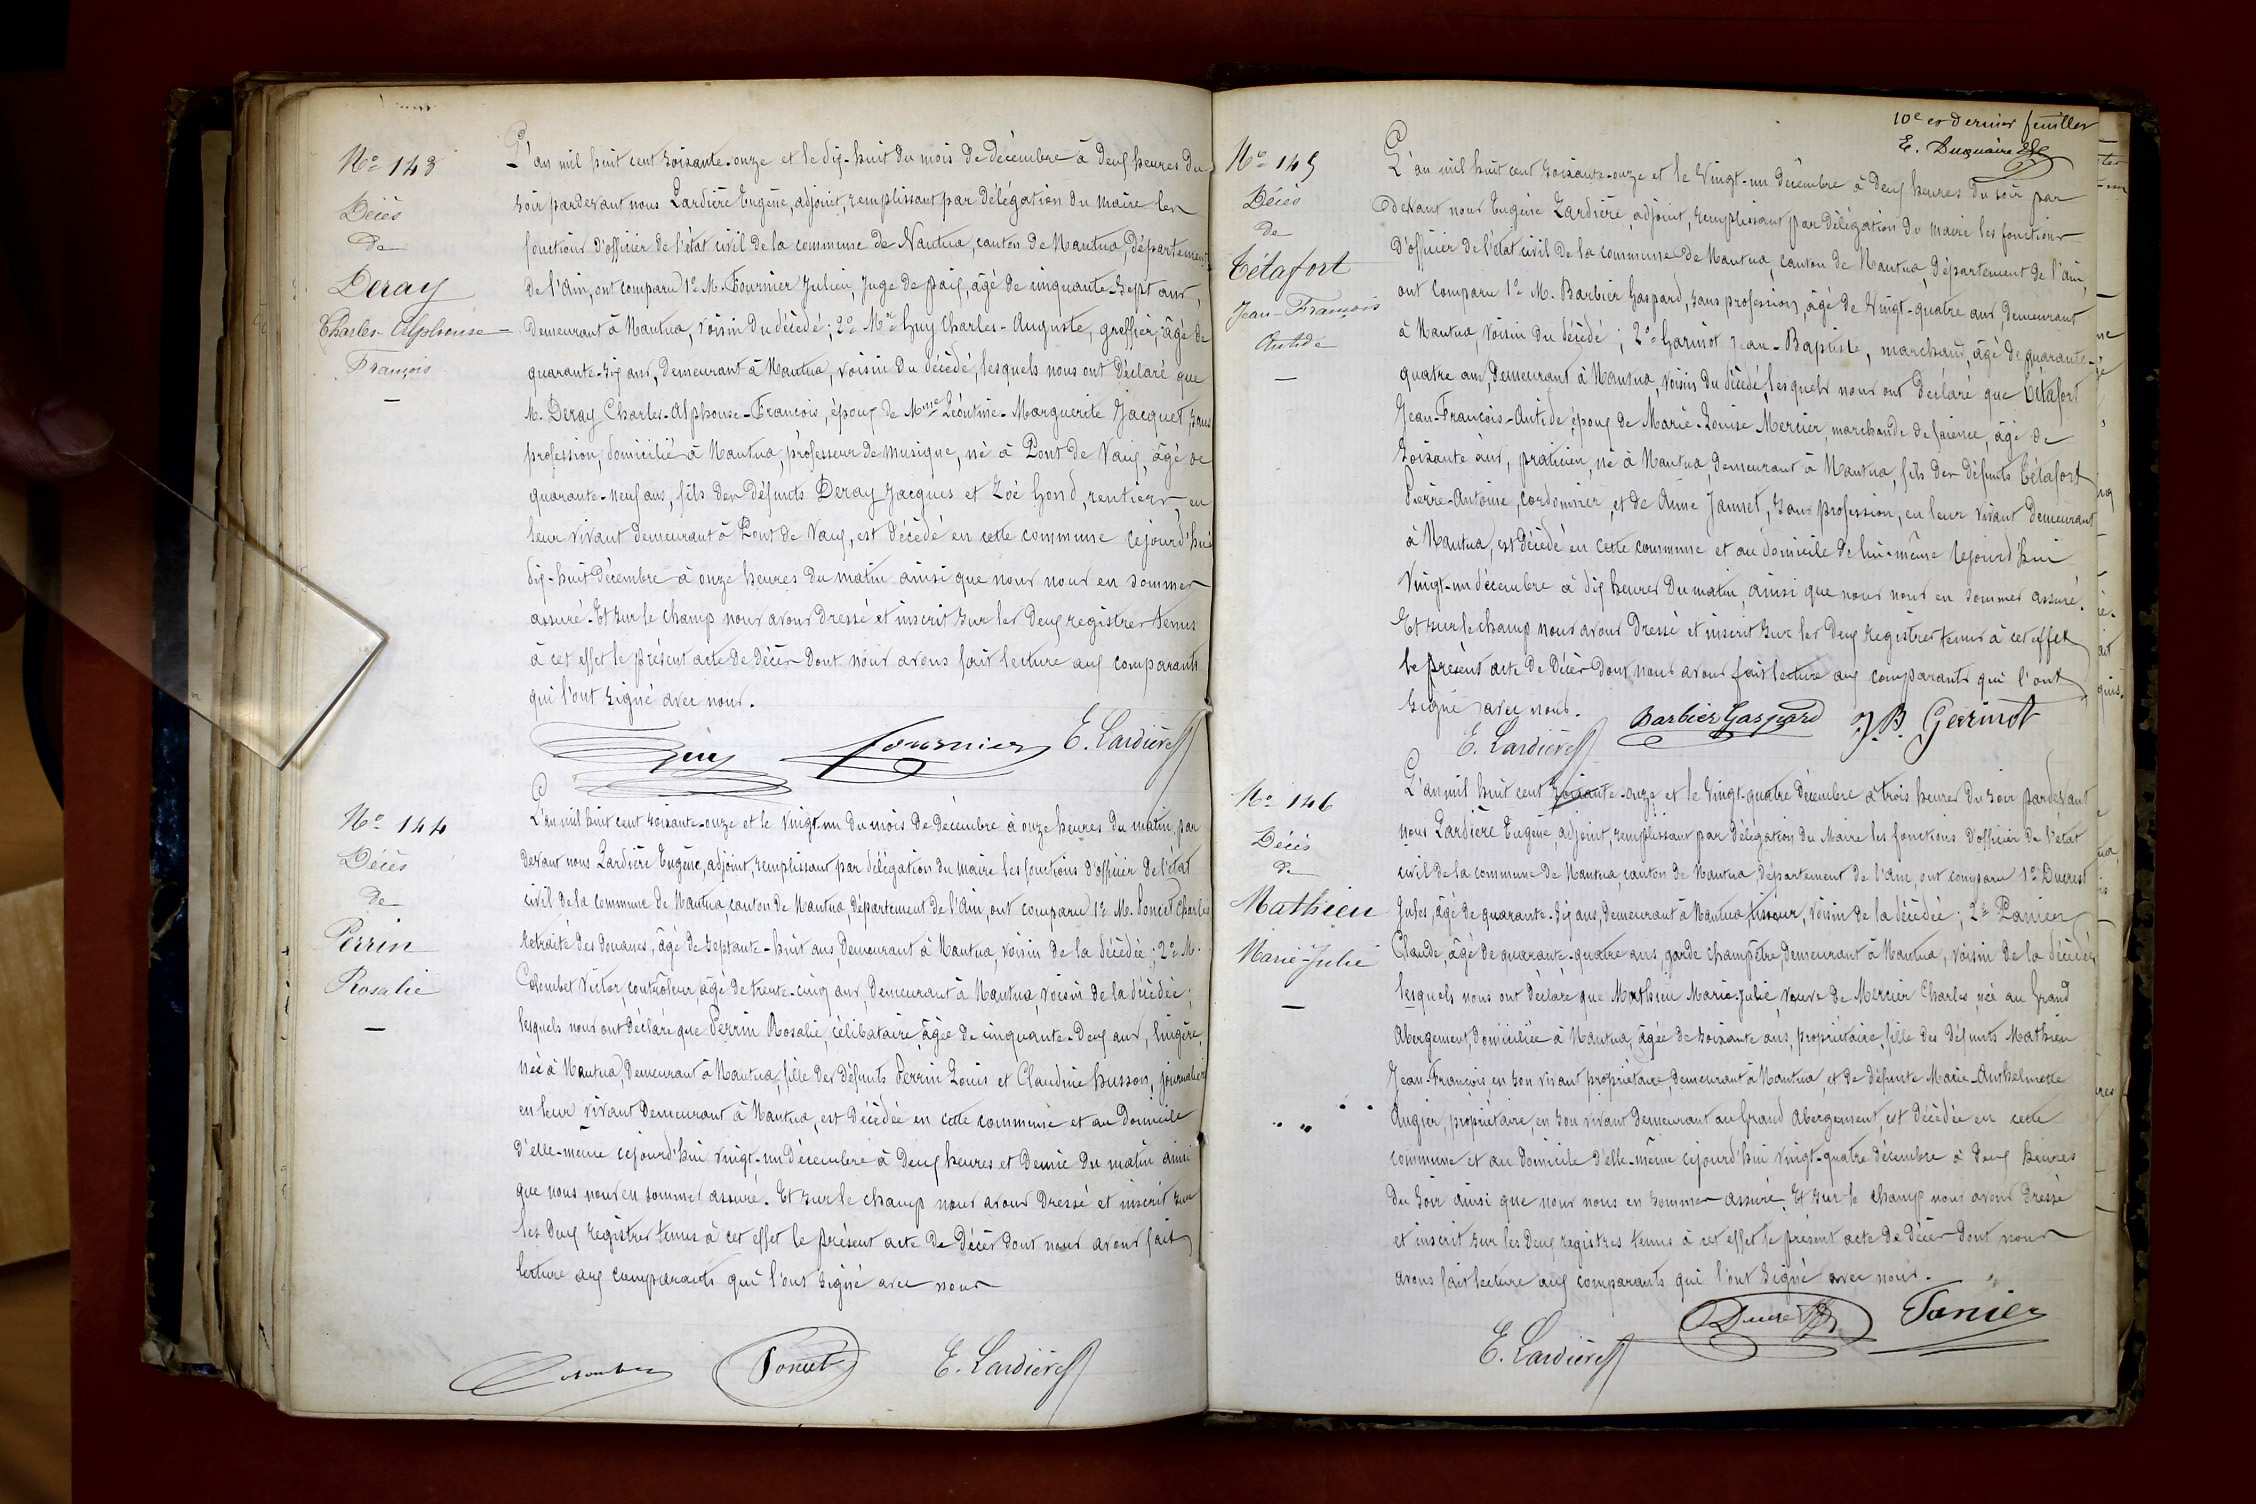 Nº 143
Décès
de
Deray
Charles-Alphonse-
François
L'an mil huit cent soixante-onze et le dix-huit du mois de décembre à deux heures du
soir pardevant nous Lardière Eugène, adjoint, remplissant par délégation du maire les
fonctions d'officier de l'état civil de la commune de Nantua, canton de Nantua, département
de l'Ain, ont comparu 1º M. Fournier Julien, Juge de paix, âgé de cinquante-sept ans,
demeurant à Nantua, voisin du décédé; 2º Me Guy Charles-Auguste, greffier, âgé de
quarante-six ans, demeurant à Nantua, voisin du décédé, lesquels nous ont déclaré que
M. Deray Charles-Alphonse-François, époux de Mme Léontine-Marguerite Jacquet, sans
profession, domicilié à Nantua, professeur de musique, né à Pont de Vaux, âgé de
quarante-neuf ans, fils des défunts Deray Jacques et Zoé Gond, rentiers, en
leur vivant demeurant à Pont de Vaux, est décédé en cette commune cejourd'hui
dix-huit décembre à onze heures du matin ainsi que nous nous en sommes
assuré. Et sur le champ nous avons dressé et inscrit sur les deux registres tenus
à cet effet le présent acte de décès dont nous avons fait lecture aux comparants
qui l'ont signé avec nous.
Guy Fournier E. Lardière
Nº 144
Décès
de
Perrin
Rosalie
L'an mil huit cent soixante-onze et le vingt-un du mois de décembre à onze heures du matin, par
devant nous Lardière Eugène, adjoint, remplissant par délégation du maire les fonctions d'officier de l'état
civil de la commune de Nantua, canton de Nantua, département de l'Ain, ont comparu 1º M. Poncet Charles
retraité des douanes, âgé de septante-huit ans, demeurant à Nantua, voisin de la décédée; 2º M.
Colombet Victor, contrôleur, âgé de trente-cinq ans, demeurant à Nantua, voisin de la décédée;
lesquels nous ont déclaré que Perrin Rosalie, célibataire, âgée de cinquante-deux ans, lingère,
née à Nantua, demeurant à Nantua, fille des défunts Perrin Louis et Claudine Husson, journaliers
en leur vivant demeurant à Nantua, est décédée en cette commune et au domicile
d'elle-même cejourd'hui vingt-un décembre à deux heures et demie du matin ainsi
que nous nous en sommes assuré. Et sur le champ nous avons dressé et inscrit sur
les deux registres tenus à cet effet le présent acte de décès dont nous avons fait
lecture aux comparants qui l'ont signé avec nous
Colombet Poncet E. Lardière
10e et dernier feuillet
E. Duquaire
Nº 145
Décès
de
Tétafort
Jean-François
Antide
L'an mil huit cent soixante-onze et le vingt-un décembre à deux heures du soir par
devant nous Eugène Lardière, adjoint, remplissant par délégation du maire les fonctions
d'officier de l'état civil de la commune de Nantua, canton de Nantua, département de l'Ain,
ont comparu 1º M. Barbier Gaspard, sans profession, âgé de vingt-quatre ans, demeurant
à Nantua, voisin du décédé; 2º Garinot Jean-Baptiste, marchand, âgé de quarante-
quatre ans, demeurant à Nantua, voisin du décédé, lesquels nous ont déclaré que Tétafort
Jean-François-Antide, époux de Marie-Louise Mercier, marchande de faïence, âgé de
soixante ans, praticien, né à Nantua, demeurant à Nantua, fils des défunts Tétafort
Pierre-Antoine, cordonnier, et de Anne Jannet, sans profession, en leur vivant demeurant
à Nantua, est décédé en cette commune et au domicile de lui-même cejourd'hui
vingt-un décembre à dix heures du matin, ainsi que nous nous en sommes assuré.
Et sur le champ nous avons dressé et inscrit sur les deux registres tenus à cet effet
le présent acte de décès dont nous avons fait lecture aux comparants qui l'ont
signé avec nous.
E. Lardière Barbier Gaspard J.B. Garinot
Nº 146
Décès
de
Mathieu
Marie-Julie
L'an mil huit cent soixante-onze et le vingt-quatre décembre à trois heures du soir pardevant
nous Lardière Eugène, adjoint, remplissant par délégation du Maire les fonctions d'officier de l'état
civil de la commune de Nantua, canton de Nantua, département de l'Ain, ont comparu 1º Ducrest
Jules, âgé de quarante-six ans, demeurant à Nantua, tisseur, voisin de la décédée; 2º Panier
Claude, âgé de quarante-quatre ans, garde champêtre, demeurant à Nantua, voisin de la décédée
lesquels nous ont déclaré que Mathieu Marie-Julie, veuve de Mercier Charles, née au Grand
Abergement, domiciliée à Nantua, âgée de soixante ans, propriétaire, fille des défunts Mathieu
Jean-François, en son vivant propriétaire, demeurant à Nantua, et de défunte Marie-Anthelmette
Augier, propriétaire, en son vivant demeurant au Grand Abergement, est décédée en cette
commune et au domicile d'elle-même cejourd'hui vingt-quatre décembre à deux heures
du soir ainsi que nous nous en sommes assuré. Et sur le champ nous avons dressé
et inscrit sur les deux registres tenus à cet effet le présent acte de décès dont nous
avons fait lecture aux comparants qui l'ont signé avec nous.
E. Lardière Ducrest Panier